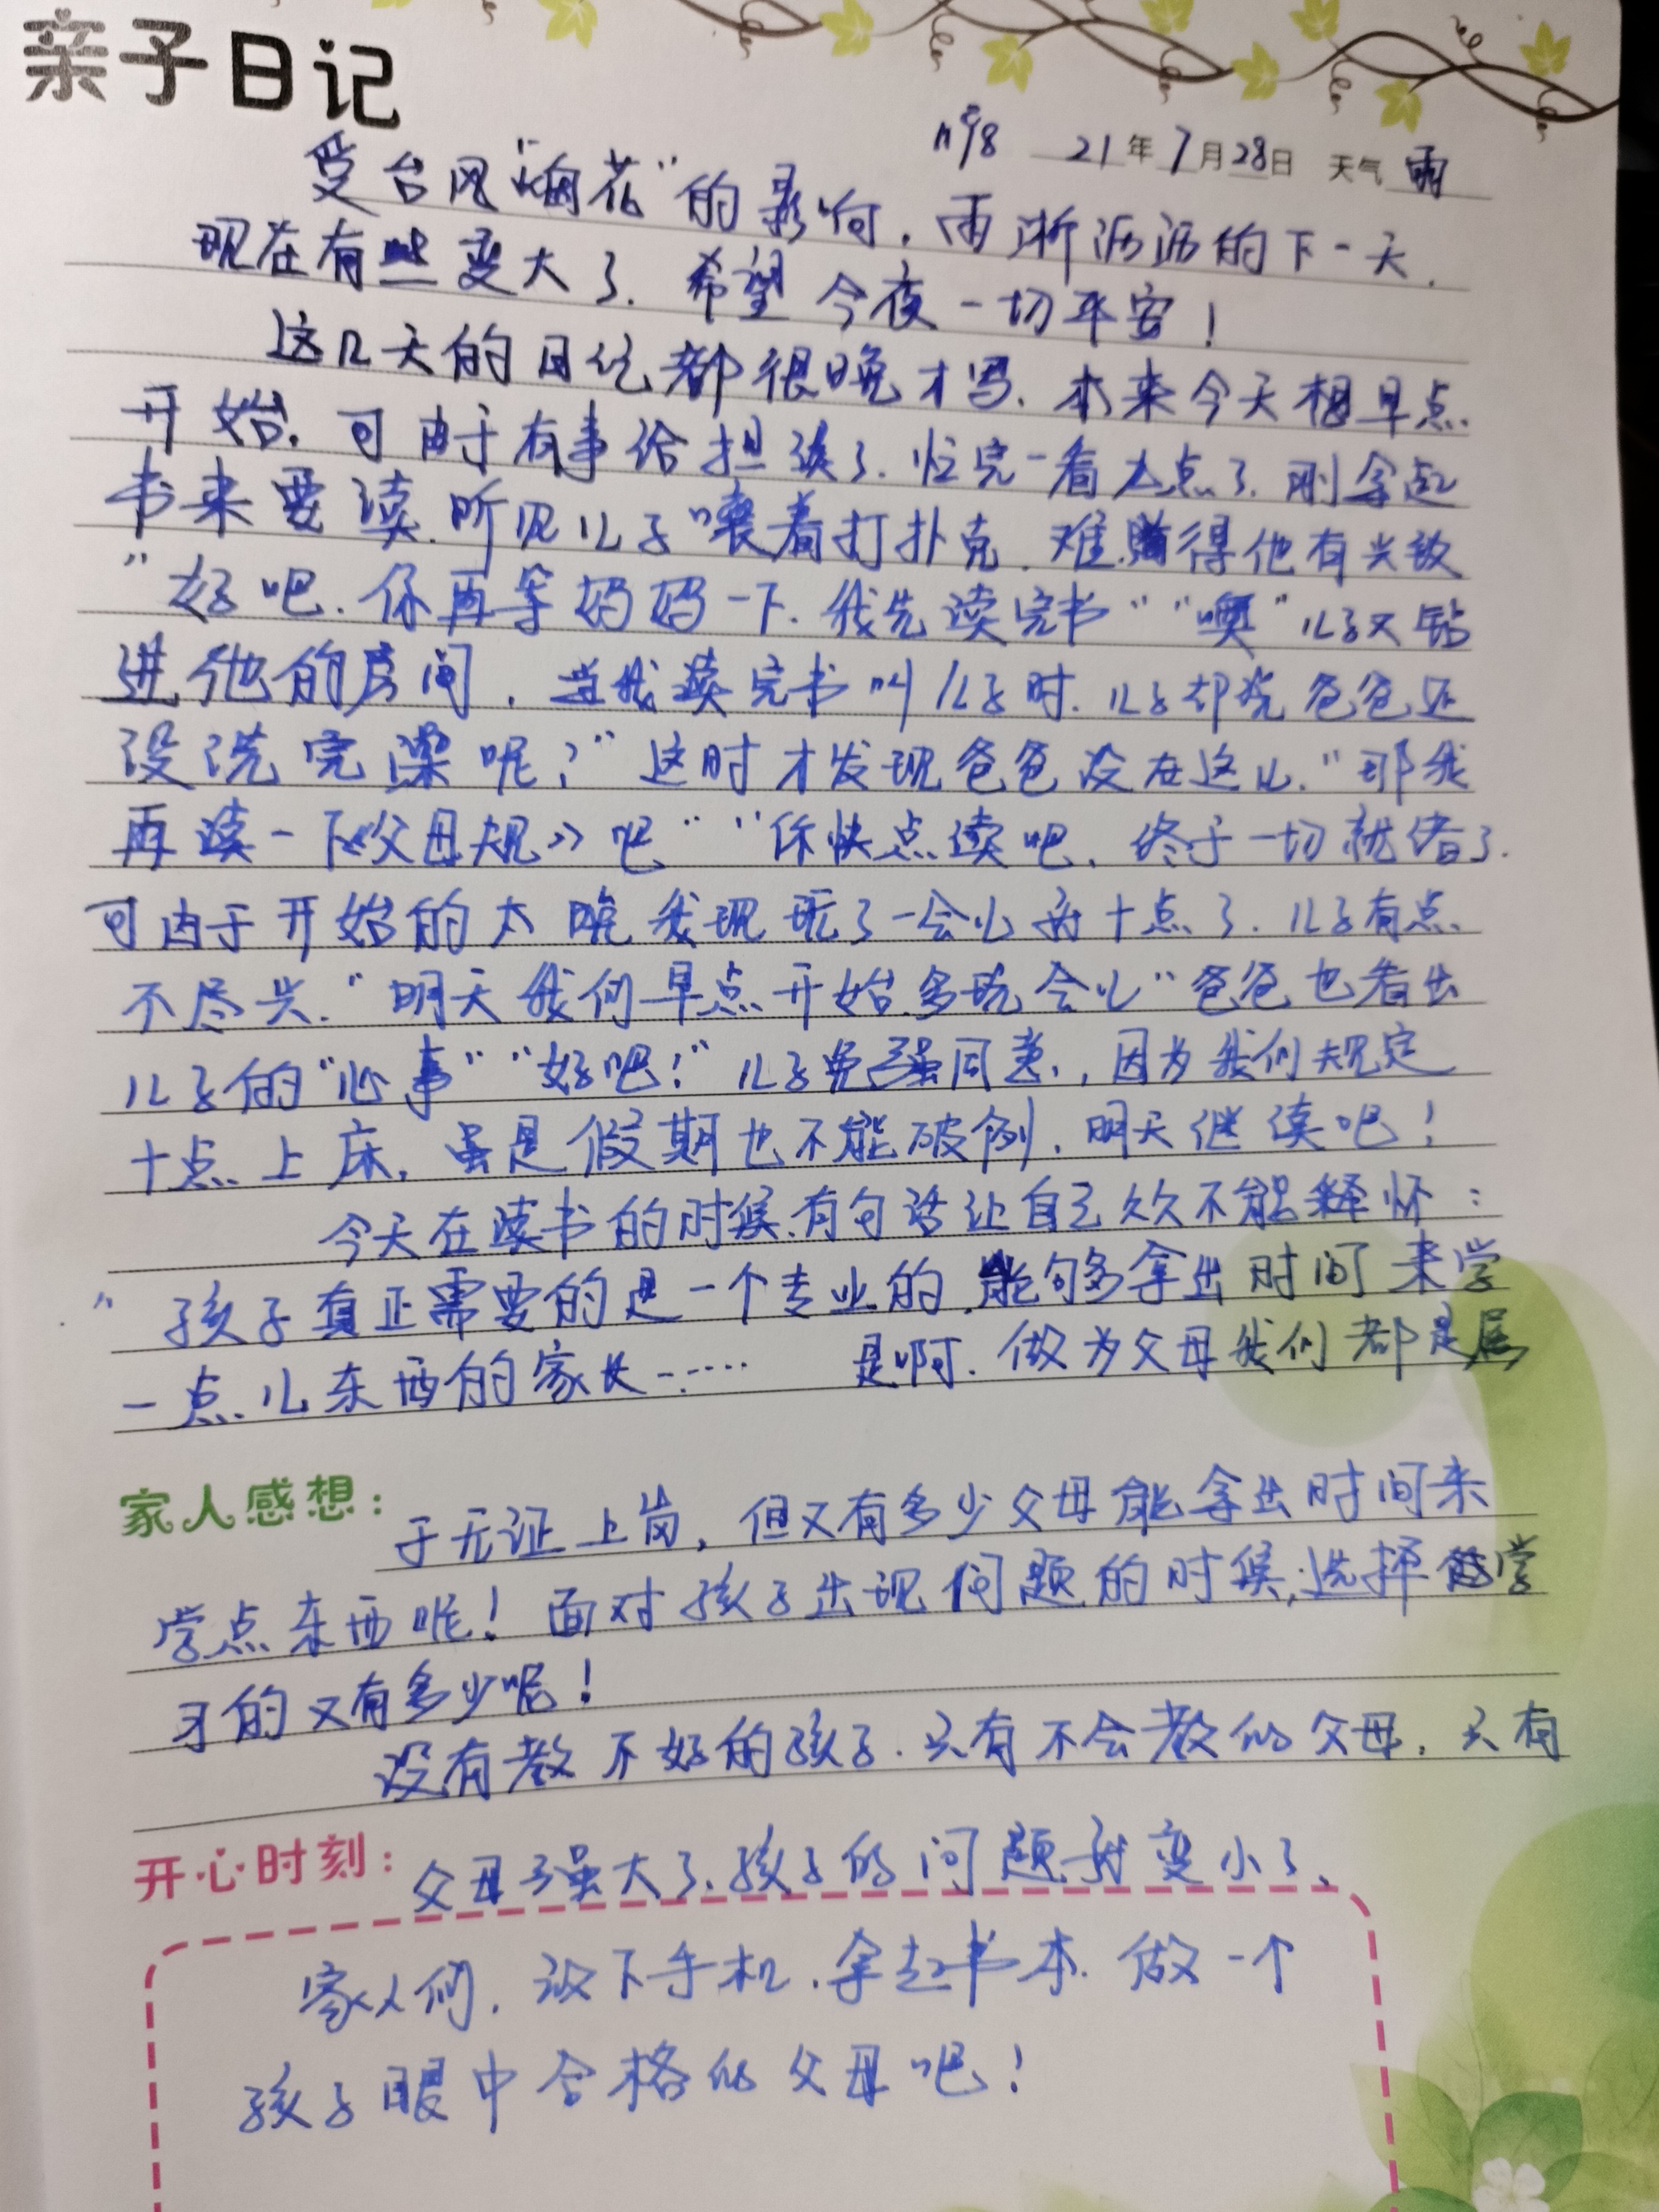 亲子日记
nº98 21年7月28日 天气 雨
受台风“烟花”的影响，雨淅沥沥的下一天.
现在有些变大了. 希望今夜一切平安！
这几天的日记都很晚才写. 本来今天想早点
开始. 可由于有事给担误了. 忙完一看九点了. 刚拿起
书来要读. 听见儿子嚷着打扑克. 难得他有兴致
“好吧. 你再等妈妈一下. 我先读完书” “噢” 儿子又钻
进他的房间，当我读完书叫儿子时. 儿子却说爸爸还
没洗完澡呢？” 这时才发现爸爸没在这儿. “那我
再读一下《父母规》吧” “你快点读吧. 终于一切就绪了.
可由于开始的太晚 我现玩了一会儿就十点了. 儿子有点
不尽兴. “明天我们早点开始. 多玩会儿” 爸爸也看出
儿子的“心事” “好吧！” 儿子免强同意，因为我们规定
十点上床，虽是假期也不能破例. 明天继续吧！
今天在读书的时候. 有句话让自己久久不能释怀：
“孩子真正需要的是一个专业的. 能够多拿出时间来学
一点儿东西的家长…… 是啊. 做为父母我们都是属
家人感想：
于无证上岗，但又有多少父母能拿出时间来
学点东西呢！面对孩子出现问题的时候，选择学
习的又有多少呢！
没有教不好的孩子. 只有不会教的父母. 只有
开心时刻：
父母强大了. 孩子的问题就变小了.
家人们. 放下手机. 拿起书本. 做一个
孩子眼中合格的父母吧！